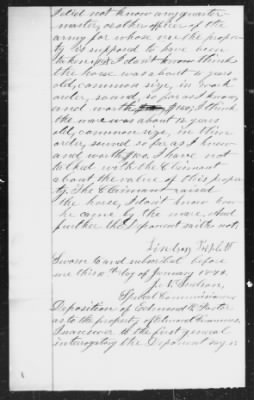 I did not know any quarter-
master, or other officer of the
army for whose use the proper-
ty is supposed to have been
taken. I don't know think
the horse was about 6 years
old, common size, in work
order, sound so far as I know,
and worth $150; I think
the mare was about 12 years
old, common size, in thin
order, sound so far as I knew
and worth I have not
talked with the Claimant
about the value of this prop-
erty. The Claimant raised
the horse, I don't know how
he came by the mare. And
further this Deponent saith not.
Sworn to and subscribed before
me this 10th day of January 1874.
Special Commissioner
Deposition of Edmund R.
as to the property of Edward
In answer to the first general
interrogatory the Deponent says